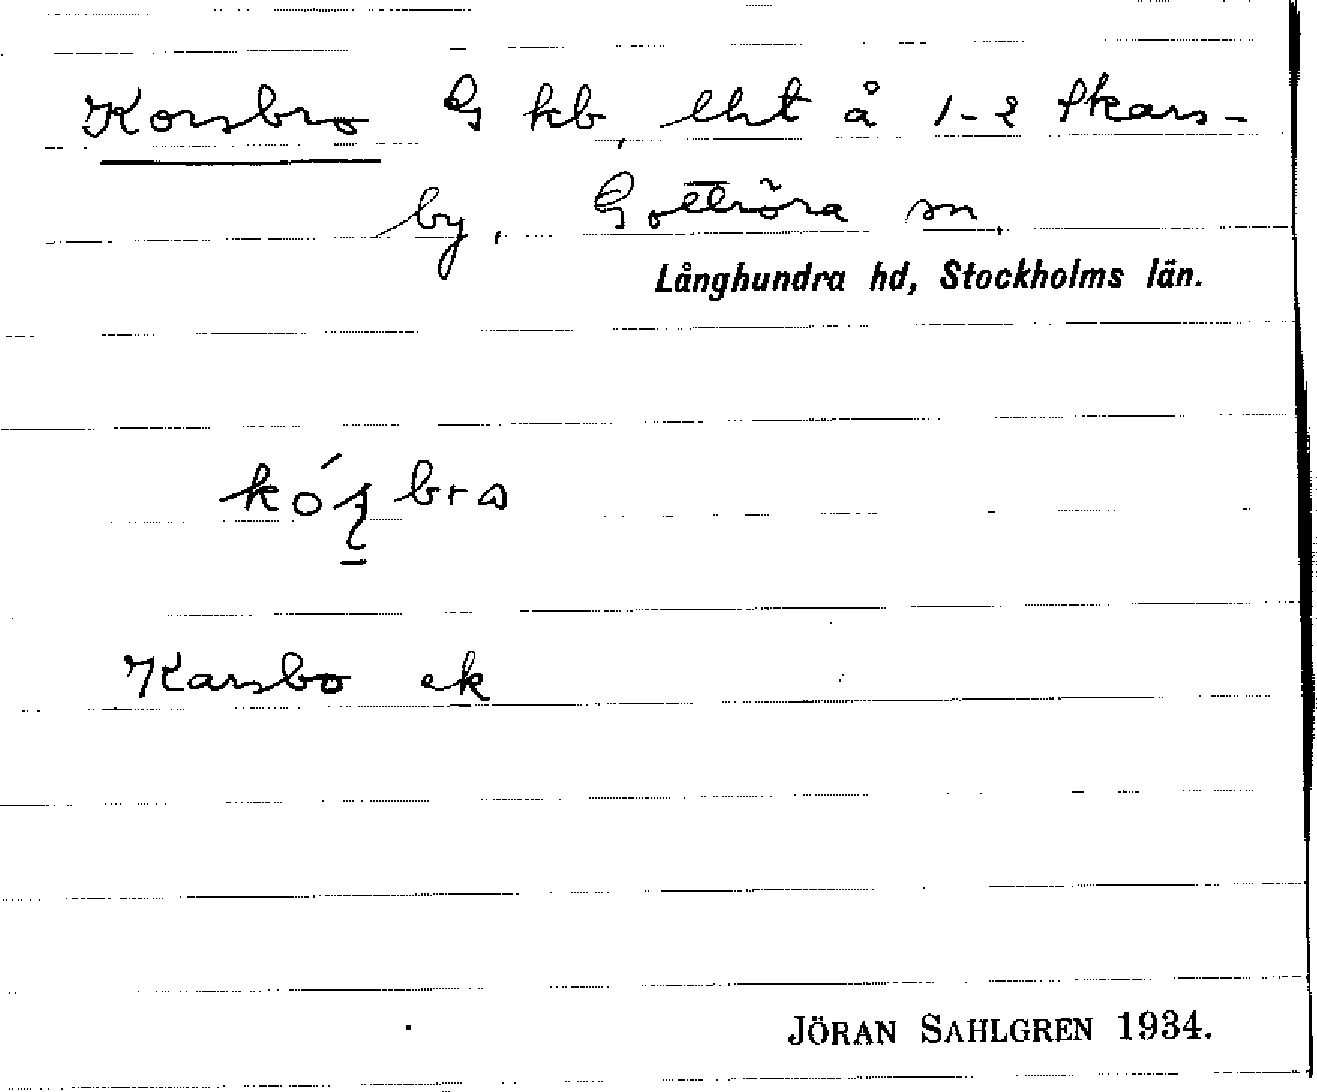 Korsbro G kb, lht å 1-2 Skars-
by, Gottröra sn,
Långhundra hd, Stockholms län.
Karsbo ek
JÖRAN SAHLGREN 1934.